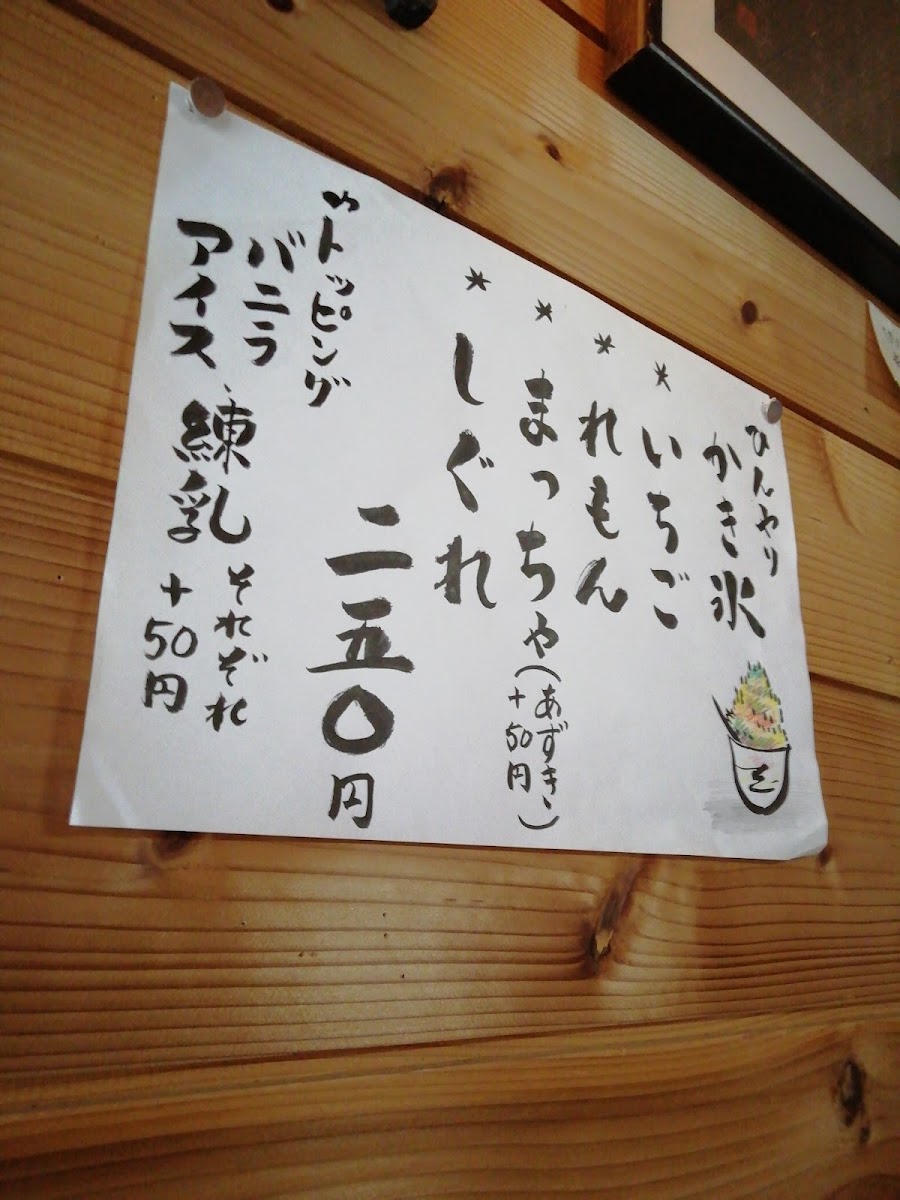 ひんやり
かき氷
* いちご
* れもん
* まっちゃ(あずき、+50円)
* しぐれ
二五〇円
"トッピング
バニラアイス、練乳
それぞれ
+50円